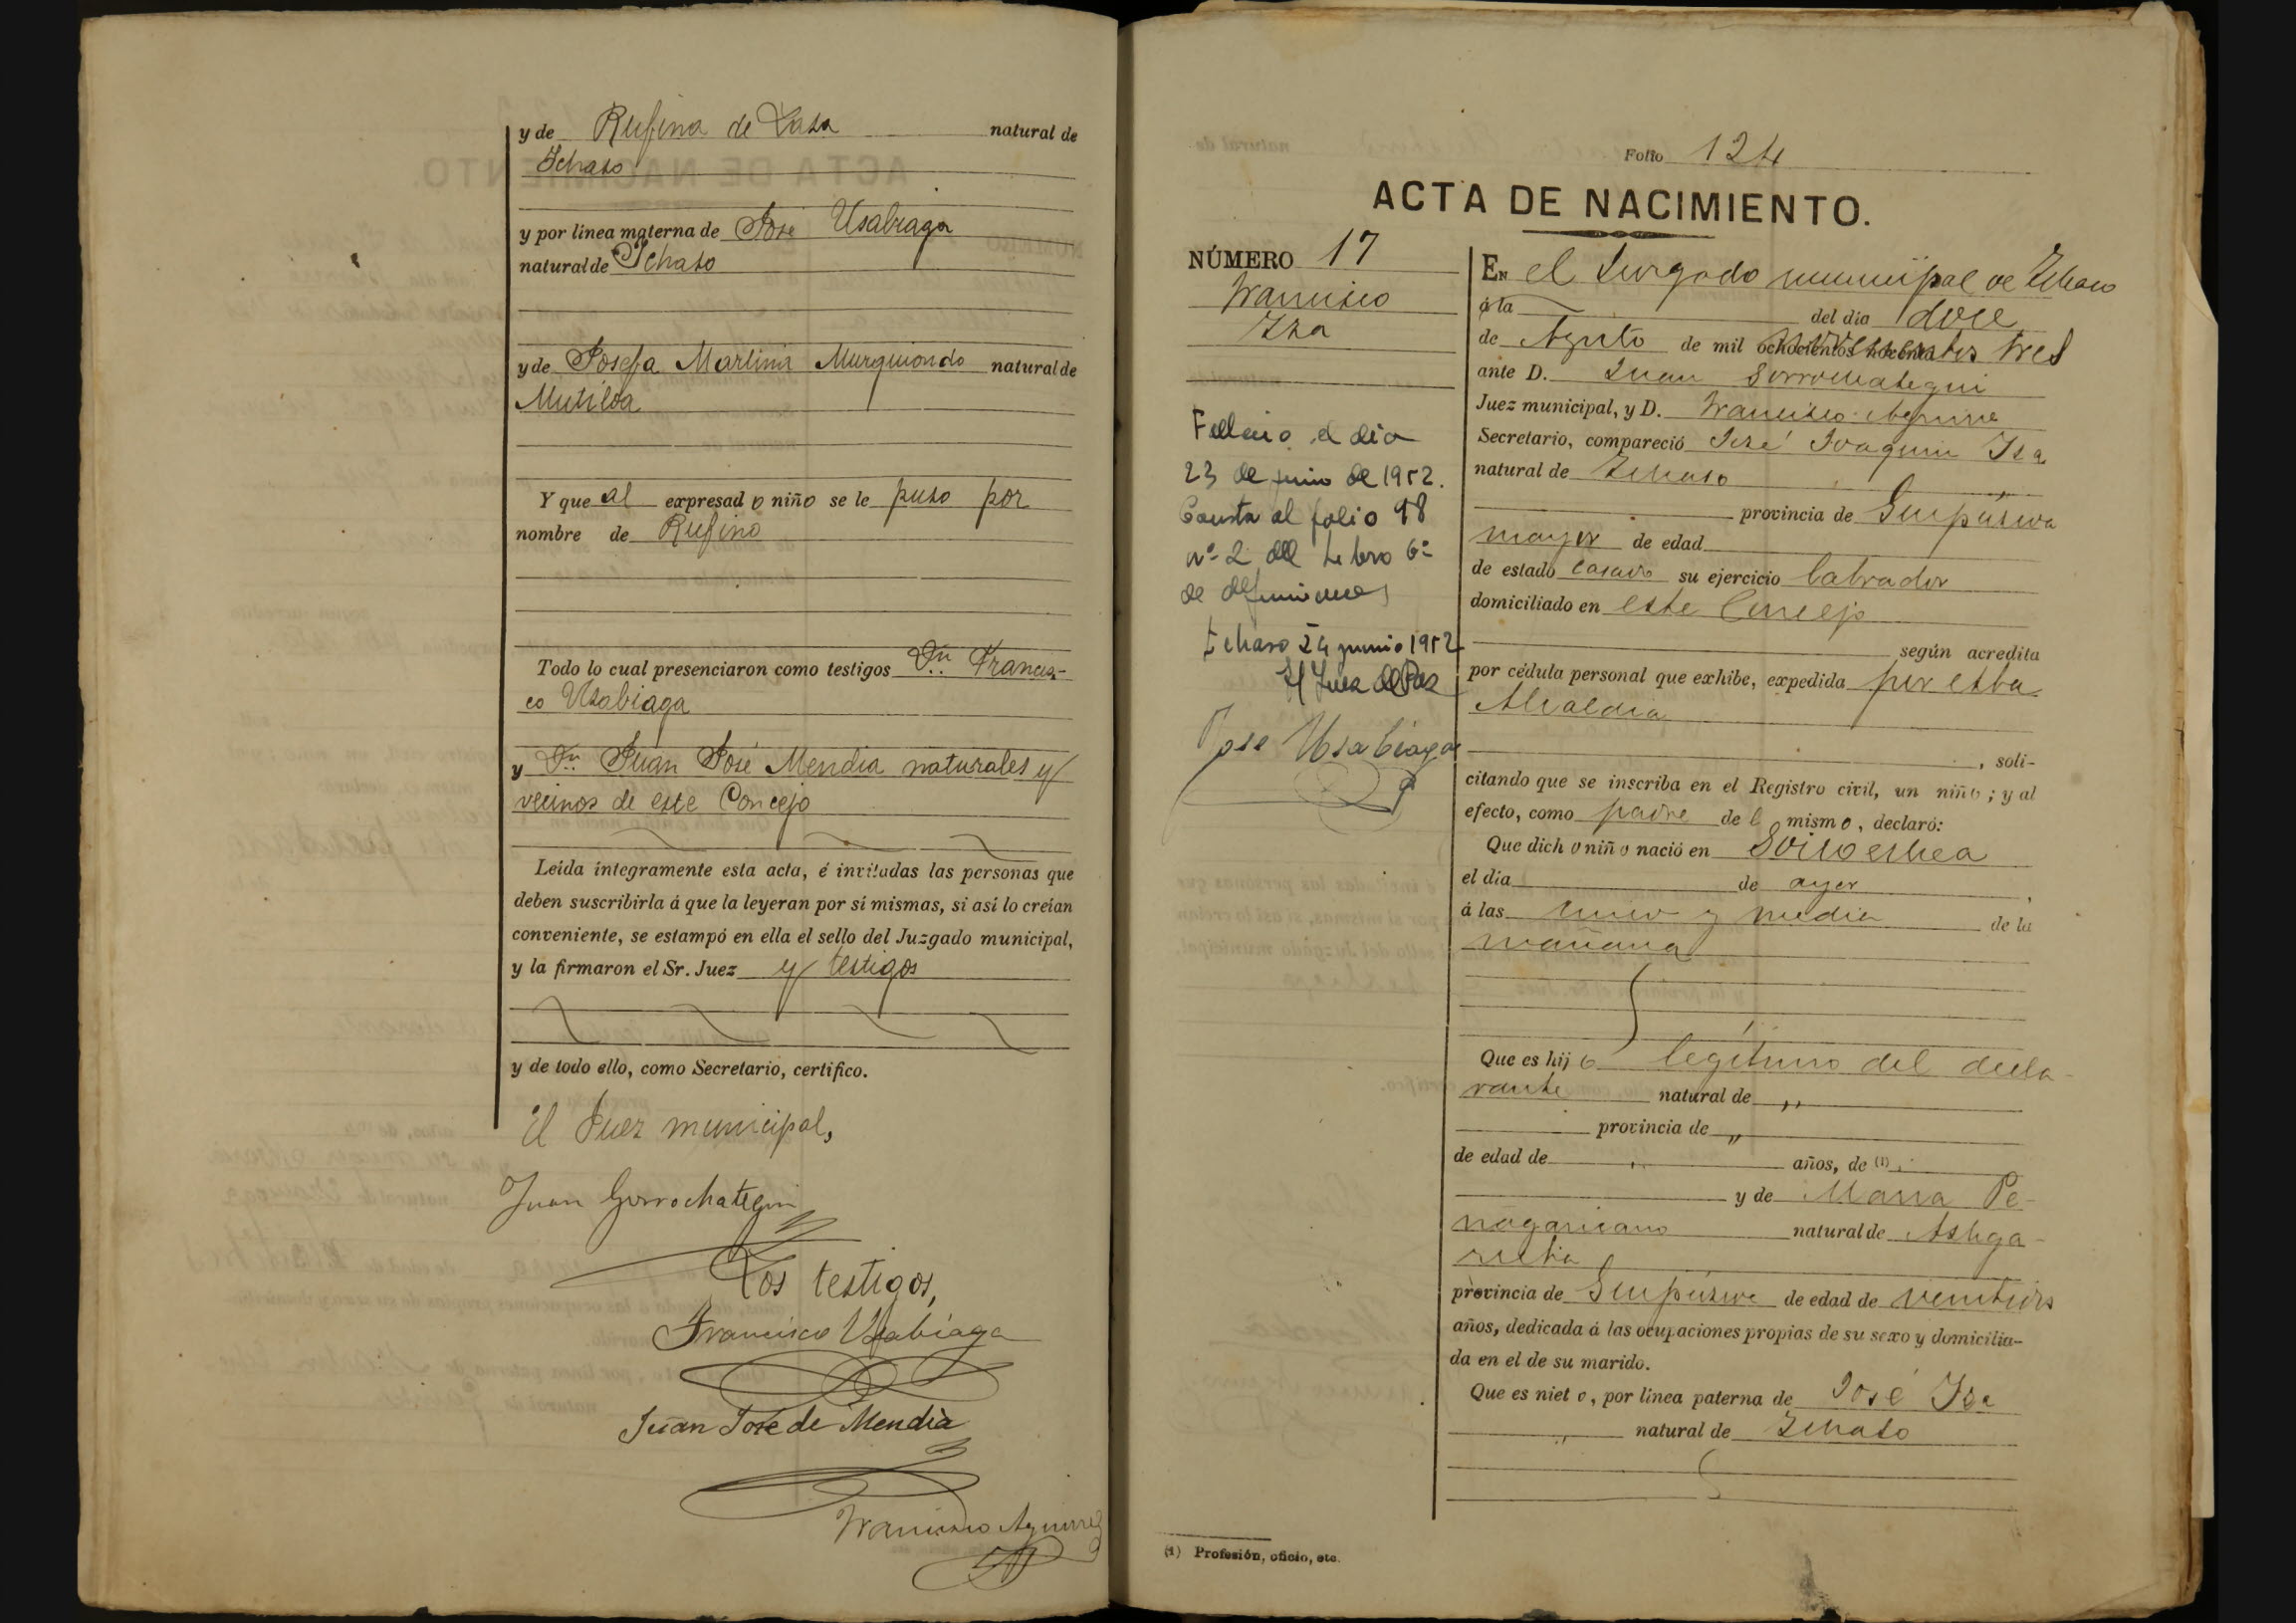 y de Rufina de Lasa natural de
Ichaso
y por línea materna de José Usabiaga
natural de Ichaso
y de Josefa Martina Murguiondo natural de
Mutiloa
Y que al expresad o niño se le puso por
nombre de Rufino
Todo lo cual presenciaron como testigos Dn. Francis-
co Usabiaga
y Dn. Juan José Mendia naturales y
vecinos de este Concejo
Leída íntegramente esta acta, é invitadas las personas que
deben suscribirla á que la leyeran por sí mismas, si así lo creían
conveniente, se estampó en ella el sello del Juzgado municipal,
y la firmaron el Sr. Juez y testigos
y de todo ello, como Secretario, certifico.
El Juez municipal,
Juan Gorrochategui
Los testigos,
Francisco Usabiaga
Juan José de Mendia
Francisco Aguirre
Folio 124
ACTA DE NACIMIENTO.
NÚMERO 17
Francisco
Iza
Fallecio el dia
23 de junio de 1952.
Consta al folio 98
nº 2 del Libro 6º
de defunciones
Ichaso 24 junio 1952
El Juez de Paz
Jose Usabiaga
En el Juzgado municipal de Ichaso
á la del día doce
de Agosto de mil ochocientos noventa novecientos tres
ante D. Juan Gorrochategui
Juez municipal, y D. Francisco Aguirre
Secretario, compareció José Joaquin Iza
natural de Ichaso
provincia de Guipúzcoa
mayor de edad
de estado casado su ejercicio labrador
domiciliado en este Concejo
según acredita
por cédula personal que exhibe, expedida por esta
Alcaldia
, soli-
citando que se inscriba en el Registro civil, un niño; y al
efecto, como padre de l mismo, declaró:
Que dich o niñ o nació en
el día de ayer,
á las cinco y media de la
mañana
Que es hij o legítimo del decla-
rante natural de „
provincia de „
de edad de años, de (1)
y de Maria Pe-
ñagaricano natural de Astiga-
rreta
provincia de Guipúzcoa de edad de veintidos
años, dedicada á las ocupaciones propias de su sexo y domicilia-
da en el de su marido.
Que es niet o, por línea paterna de José Iza
natural de Ichaso
(1) Profesión, oficio, etc.